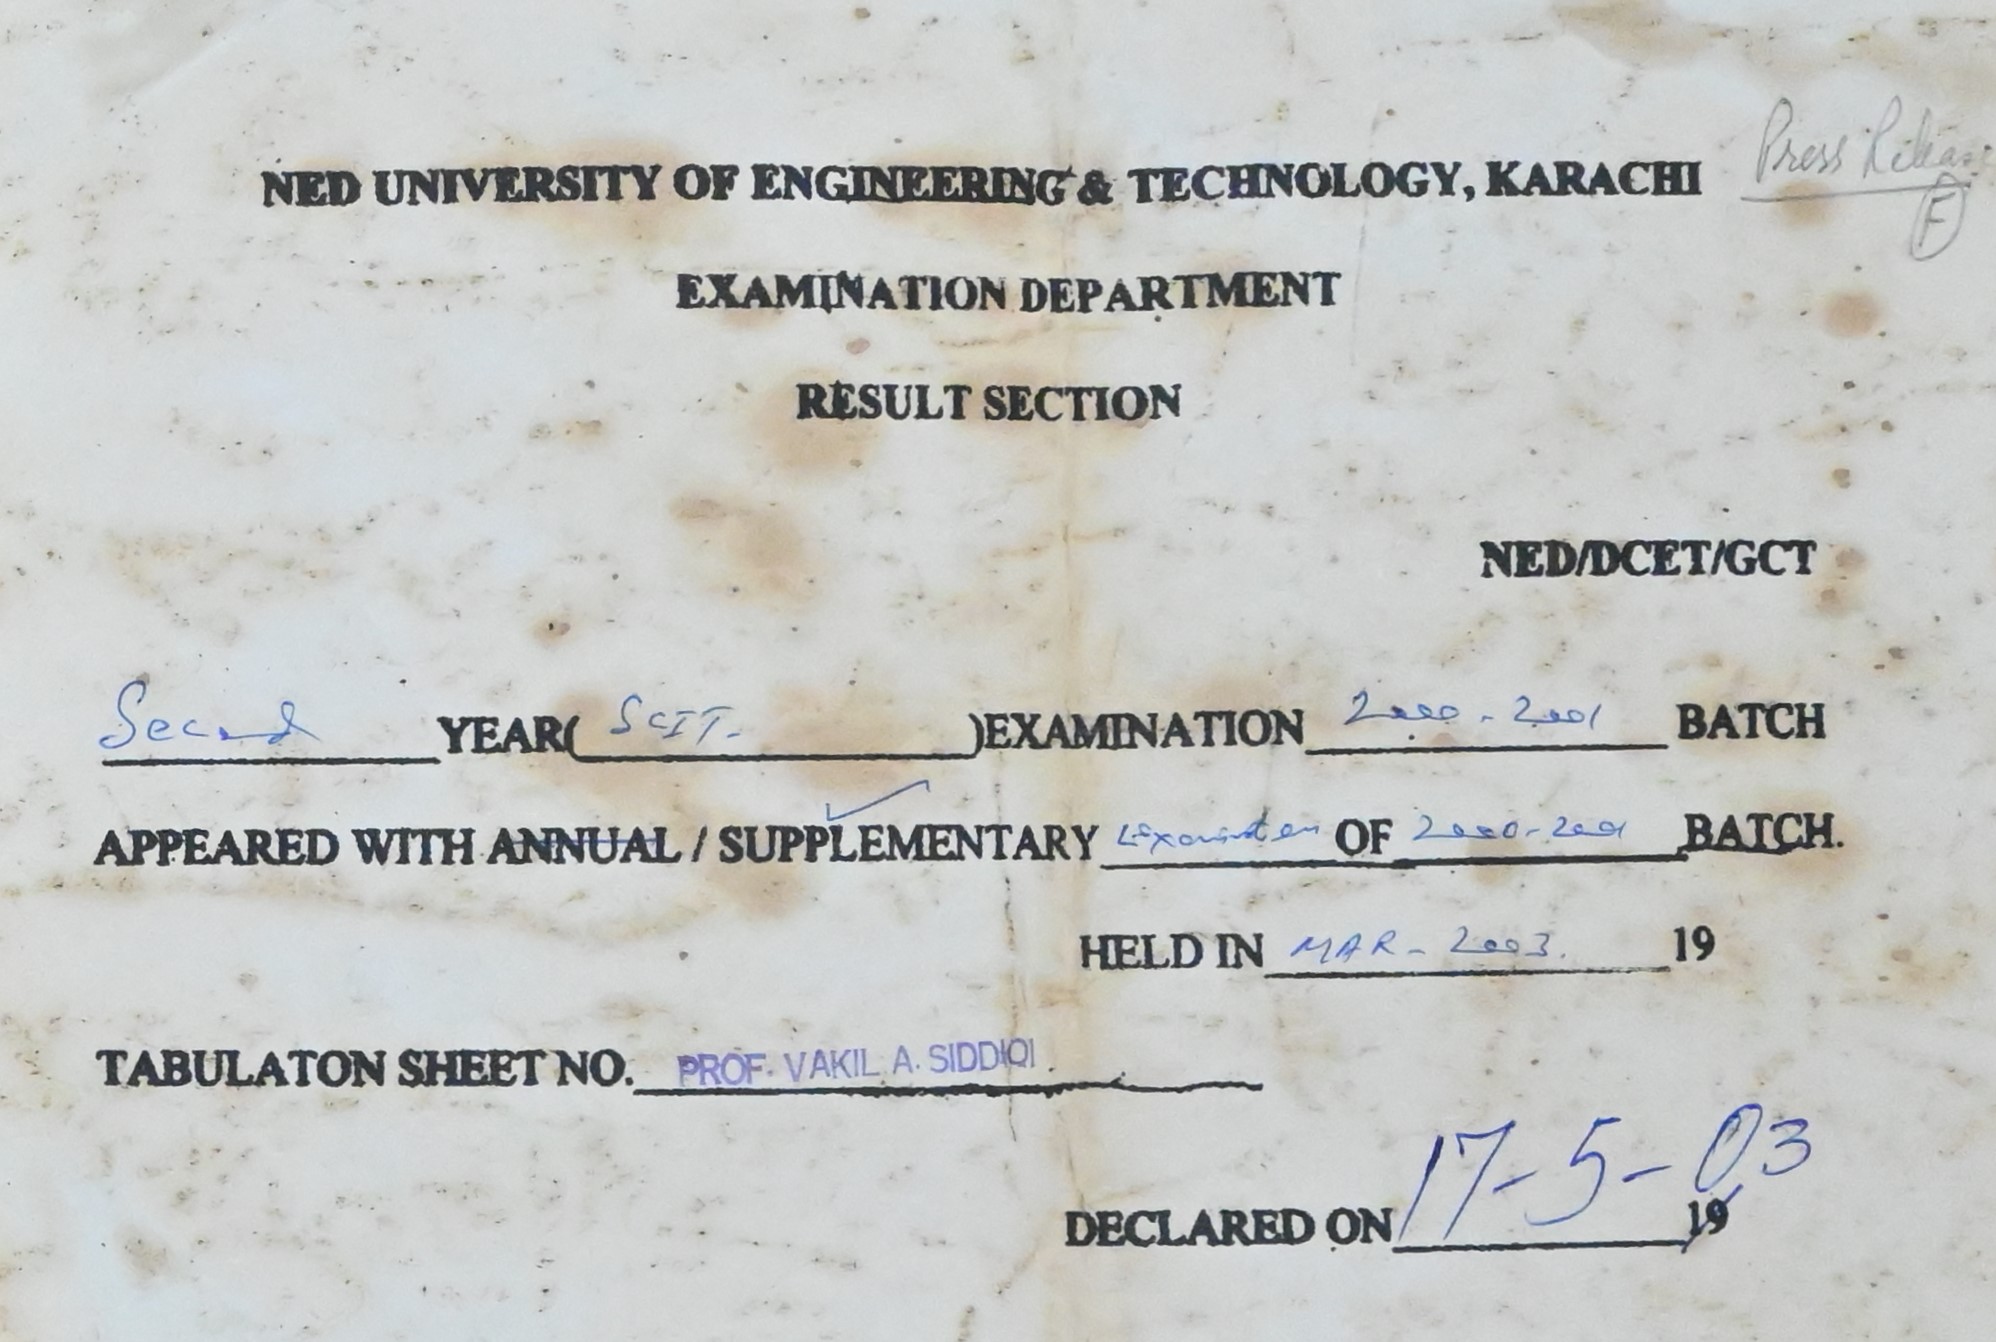 Press Release
F
NED UNIVERSITY OF ENGINEERING & TECHNOLOGY, KARACHI
EXAMINATION DEPARTMENT
RESULT SECTION
NED/DCET/GCT
Second YEAR( SCIT. )EXAMINATION 2000-2001 BATCH
APPEARED WITH ANNUAL / SUPPLEMENTARY Examination OF 2000-2001 BATCH.
HELD IN MAR-2003. 19
TABULATON SHEET NO. PROF. VAKIL A. SIDDIQI.
DECLARED ON 17-5-03 19